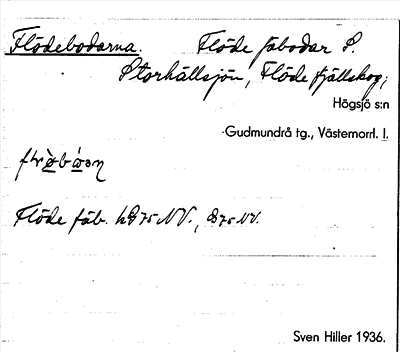 Flödebodarna. Flöde fäbodar S.
Storhällsjön, Flöde fjällskog;
Högsjö s:n
Gudmundrå tg., Västernorrl. l.
Flöde fäb. NV., NV.
Sven Hiller 1936.